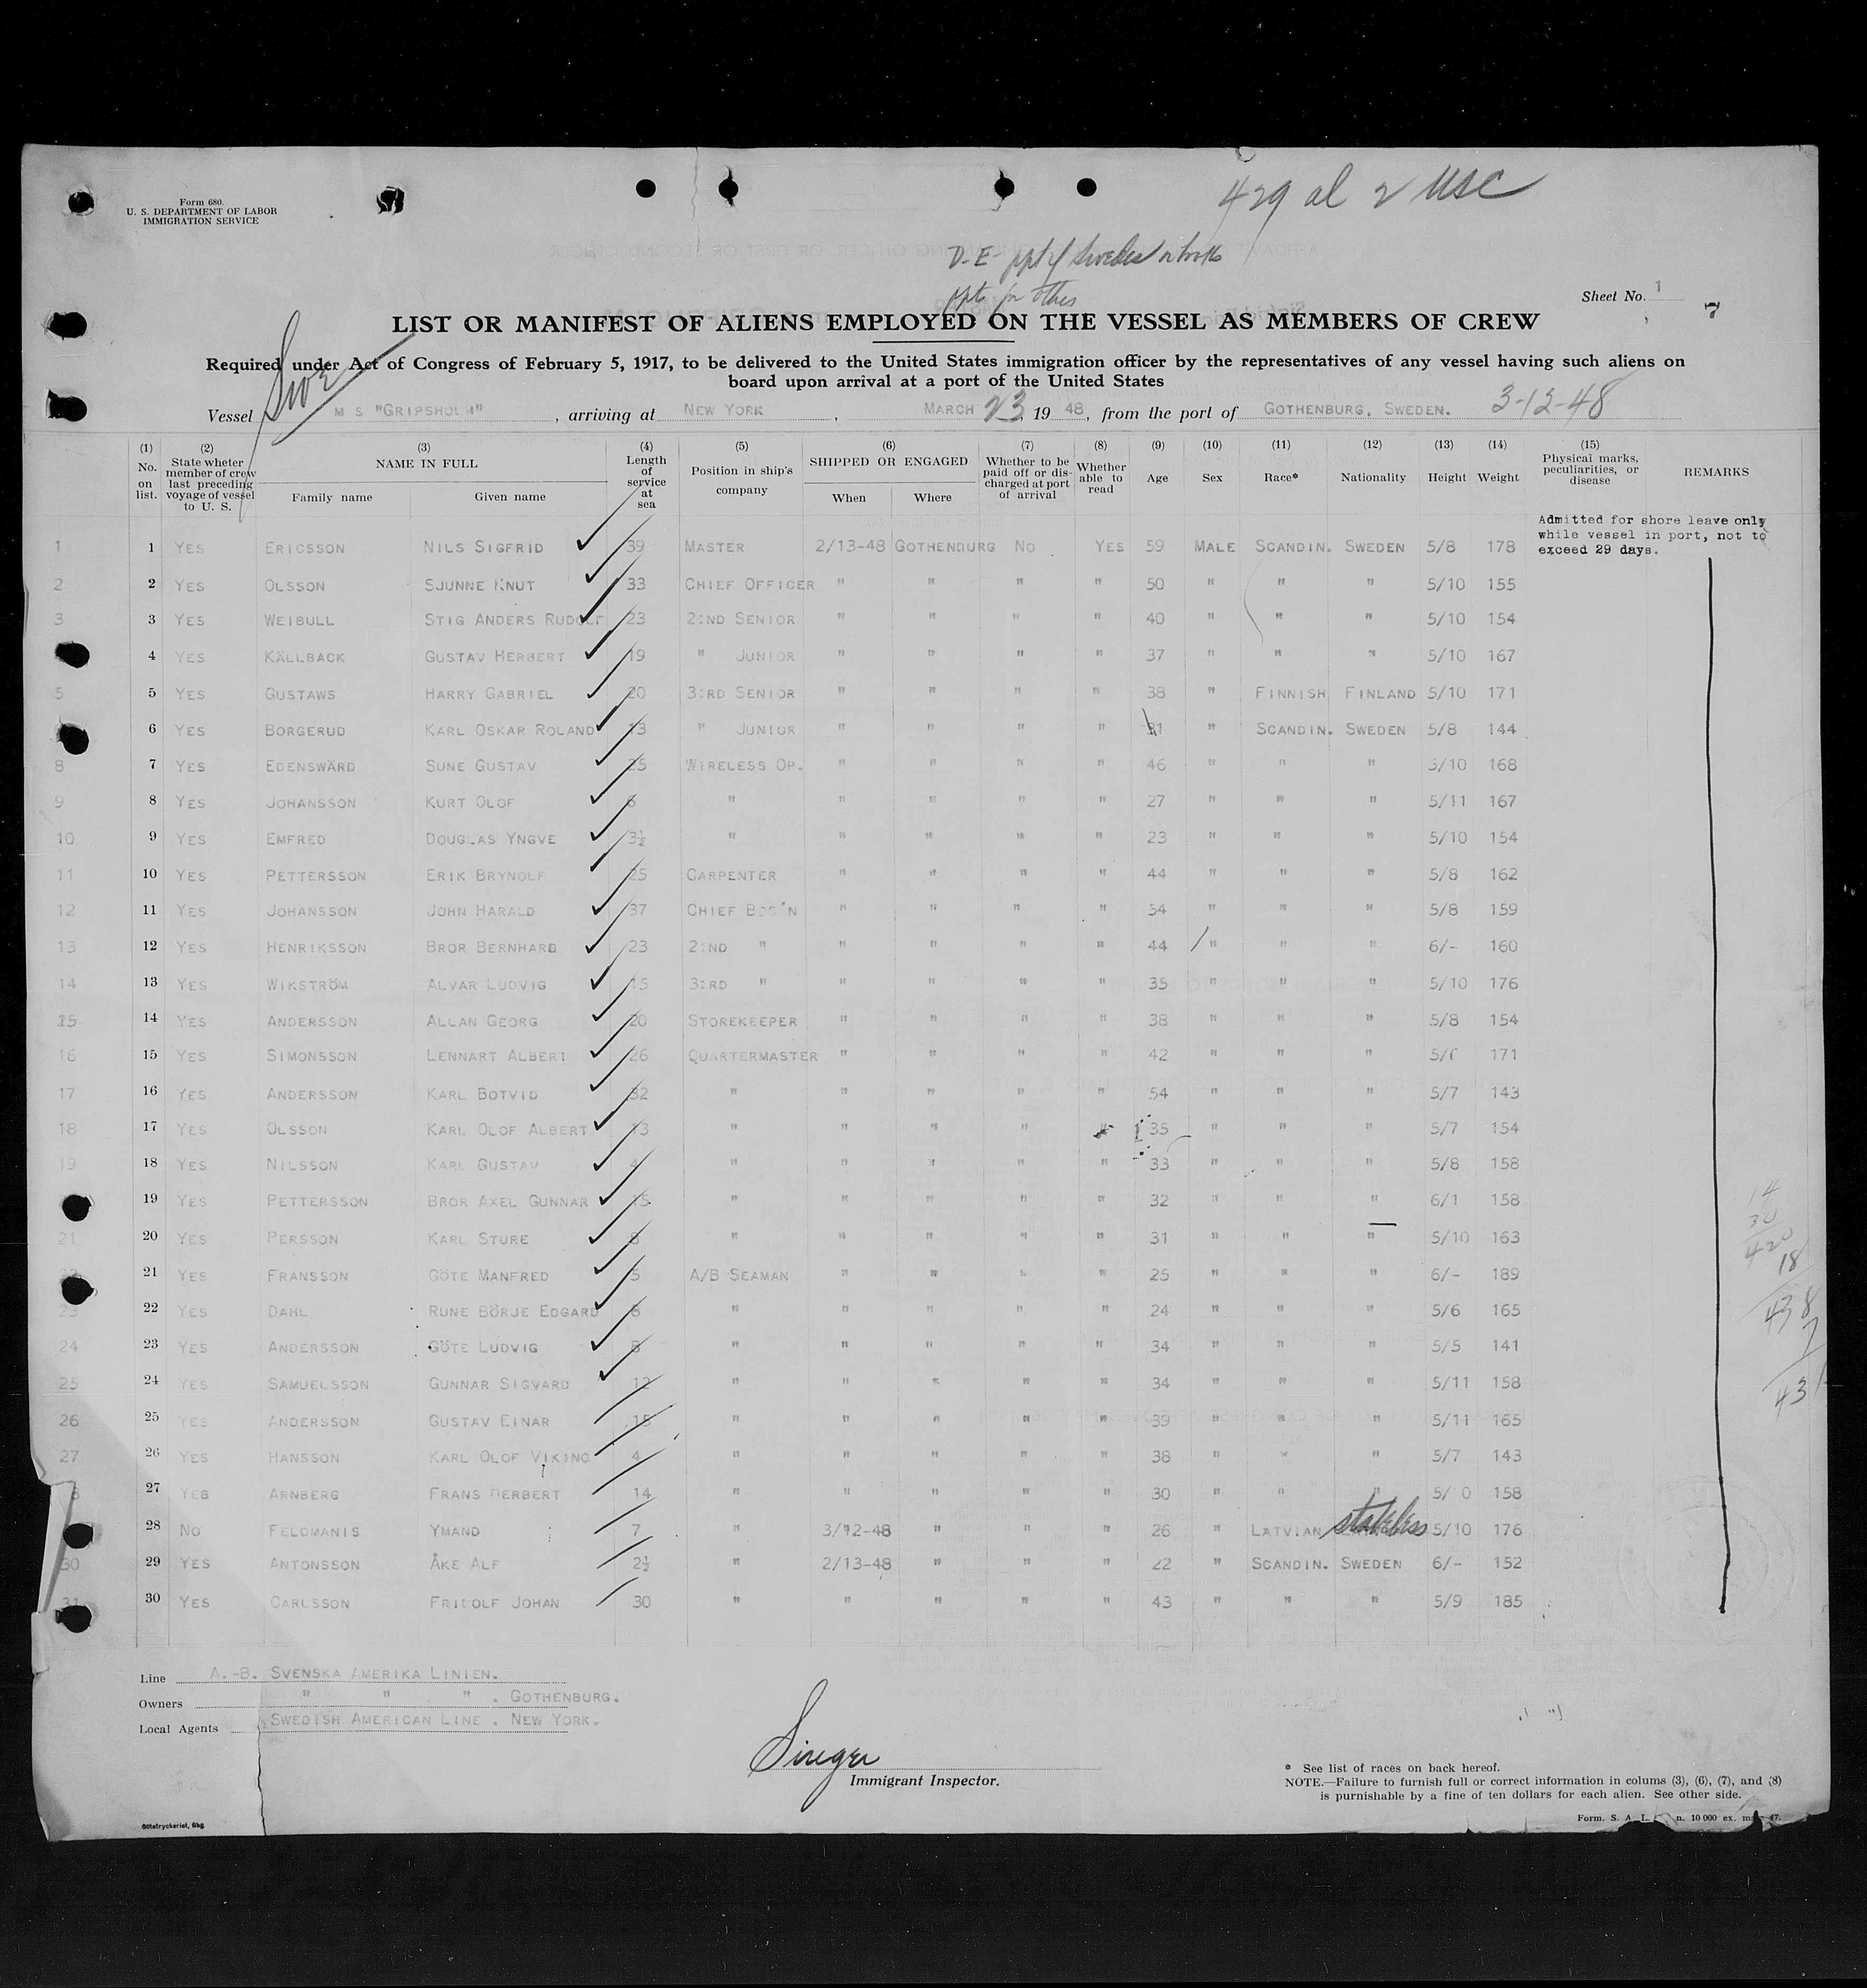 Form 680.
U. S. DEPARTMENT OF LABOR
IMMIGRATION SERVICE
429 al 2 USC
D-E- ppt of Sweden
ppt for others
Sheet No. 1
LIST OR MANIFEST OF ALIENS EMPLOYED ON THE VESSEL AS MEMBERS OF CREW
Required under Act of Congress of February 5, 1917, to be delivered to the United States immigration officer by the representatives of any vessel having such aliens on
board upon arrival at a port of the United States
Vessel M S "GRIPSHOLM", arriving at NEW YORK, MARCH 23, 19 48, from the port of GOTHENBURG, SWEDEN. 3-12-48
(1) No. on list. (2) State wheter member of crew last preceding voyage of vessel to U. S. (3) NAME IN FULL Family name Given name (4) Length of service at sea (5) Position in ship's company (6) SHIPPED OR ENGAGED When Where (7) Whether to be paid off or discharged at port of arrival (8) Whether able to read (9) Age (10) Sex (11) Race* (12) Nationality (13) Height (14) Weight (15) Physical marks, peculiarities, or disease REMARKS
Admitted for shore leave only
while vessel in port, not to
exceed 29 days.
1 1 YES ERICSSON NILS SIGFRID 39 MASTER 2/13-48 GOTHENBURG NO YES 59 MALE SCANDIN. SWEDEN 5/8 178
2 2 YES OLSSON SJUNNE KNUT 33 CHIEF OFFICER " " " " 50 " " " 5/10 155
3 3 YES WEIBULL STIG ANDERS RUDOLF 23 2:ND SENIOR " " " " 40 " " " 5/10 154
4 YES KÄLLBACK GUSTAV HERBERT 19 " JUNIOR " " " " 37 " " " 5/10 167
5 5 YES GUSTAWS HARRY GABRIEL 20 3:RD SENIOR " " " " 38 " FINNISH FINLAND 5/10 171
6 YES BORGERUD KARL OSKAR ROLAND 13 " JUNIOR " " " " 31 " SCANDIN. SWEDEN 5/8 144
8 7 YES EDENSWÄRD SUNE GUSTAV 25 WIRELESS OP. " " " " 46 " " " 5/10 168
9 8 YES JOHANSSON KURT OLOF 6 " " " " " 27 " " " 5/11 167
10 9 YES EMFRED DOUGLAS YNGVE 3½ " " " " " 23 " " " 5/10 154
11 10 YES PETTERSSON ERIK BRYNOLF 25 CARPENTER " " " " 44 " " " 5/8 162
12 11 YES JOHANSSON JOHN HARALD 37 CHIEF BOS'N " " " " 54 " " " 5/8 159
13 12 YES HENRIKSSON BROR BERNHARD 23 2:ND " " " " " 44 " " " 6/- 160
14 13 YES WIKSTRÖM ALVAR LUDVIG 15 3:RD " " " " " 35 " " " 5/10 176
15 14 YES ANDERSSON ALLAN GEORG 20 STOREKEEPER " " " " 38 " " " 5/8 154
16 15 YES SIMONSSON LENNART ALBERT 26 QUARTERMASTER " " " " 42 " " " 171
17 16 YES ANDERSSON KARL BOTVID 32 " " " " " 54 " " " 5/7 143
18 17 YES OLSSON KARL OLOF ALBERT 13 " " " " " 35 " " " 5/7 154
19 18 YES NILSSON KARL GUSTAV 4 " " " " " 33 " " " 5/8 158
19 YES PETTERSSON BROR AXEL GUNNAR 15 " " " " " 32 " " " 6/1 158
21 20 YES PERSSON KARL STURE 8 " " " " " 31 " " " 5/10 163
21 YES FRANSSON GÖTE MANFRED 5 A/B SEAMAN " " " " 25 " " " 6/- 189
23 22 YES DAHL RUNE BÖRJE EDGARD 8 " " " " " 24 " " " 5/6 165
24 23 YES ANDERSSON GÖTE LUDVIG 8 " " " " " 34 " " " 5/5 141
25 24 YES SAMUELSSON GUNNAR SIGVARD 12 " " " " " 34 " " " 5/11 158
26 25 YES ANDERSSON GUSTAV EINAR 15 " " " " " 39 " " " 5/11 165
27 26 YES HANSSON KARL OLOF VIKING 4 " " " " " 38 " " " 5/7 143
27 YES ARNBERG FRANS HERBERT 14 " " " " " 30 " " " 5/ 0 158
28 NO FELDMANIS YMAND 7 " 3/12-48 " " " 26 " LATVIAN stateless 5/10 176
30 29 YES ANTONSSON ÅKE ALF 2½ " 2/13-48 " " " 22 " SCANDIN. SWEDEN 6/- 152
31 30 YES CARLSSON FRIDOLF JOHAN 30 " " " " " 43 " " " 5/9 185
14
30
420
18
438
7
431
Line A.-B. SVENSKA AMERIKA LINIEN.
Owners " " " . GOTHENBURG.
Local Agents SWEDISH AMERICAN LINE . NEW YORK.
Singer
Immigrant Inspector.
* See list of races on back hereof.
NOTE.—Failure to furnish full or correct information in colums (3), (6), (7), and (8)
is purnishable by a fine of ten dollars for each alien. See other side.
Götatryckeriet, Gbg.
Form. S. A. L. n. 10 000 ex. 47.